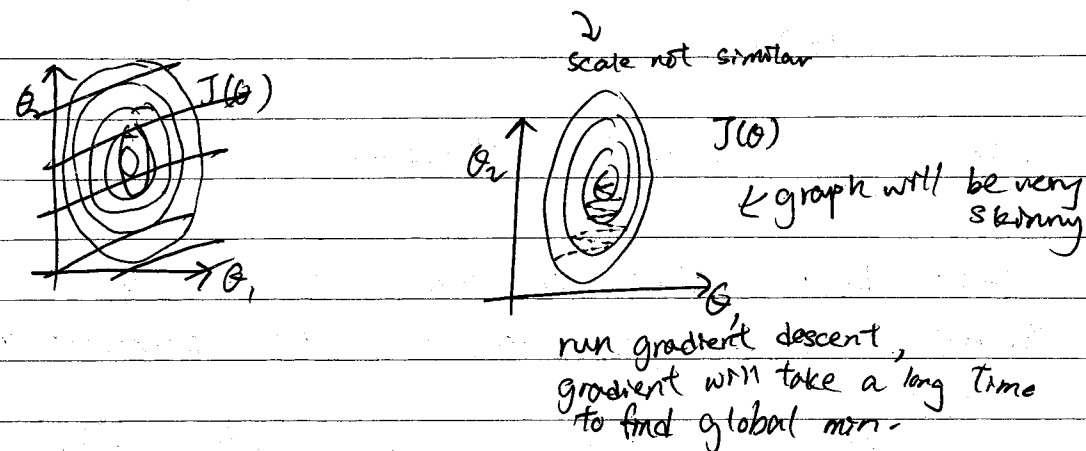 scale not similar
θ₂
J(θ)
θ₁
θ₂
J(θ)
← graph will be very
skinny
θ₁
run gradient descent,
gradient will take a long time
to find global min.